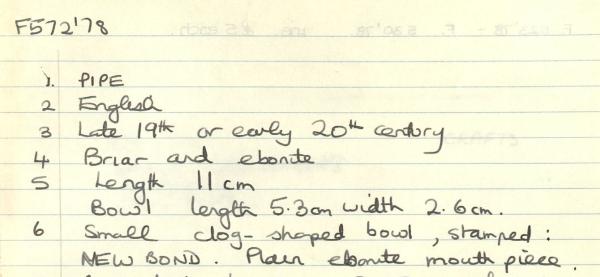 F572'78
1. PIPE
2 English
3 Late 19th or early 20th century
4 Briar and ebonite
5 Length 11cm
Bowl length 5.3cm width 2.6cm.
6 Small clog-shaped bowl, stamped:
NEW BOND. Plain ebonite mouth piece.